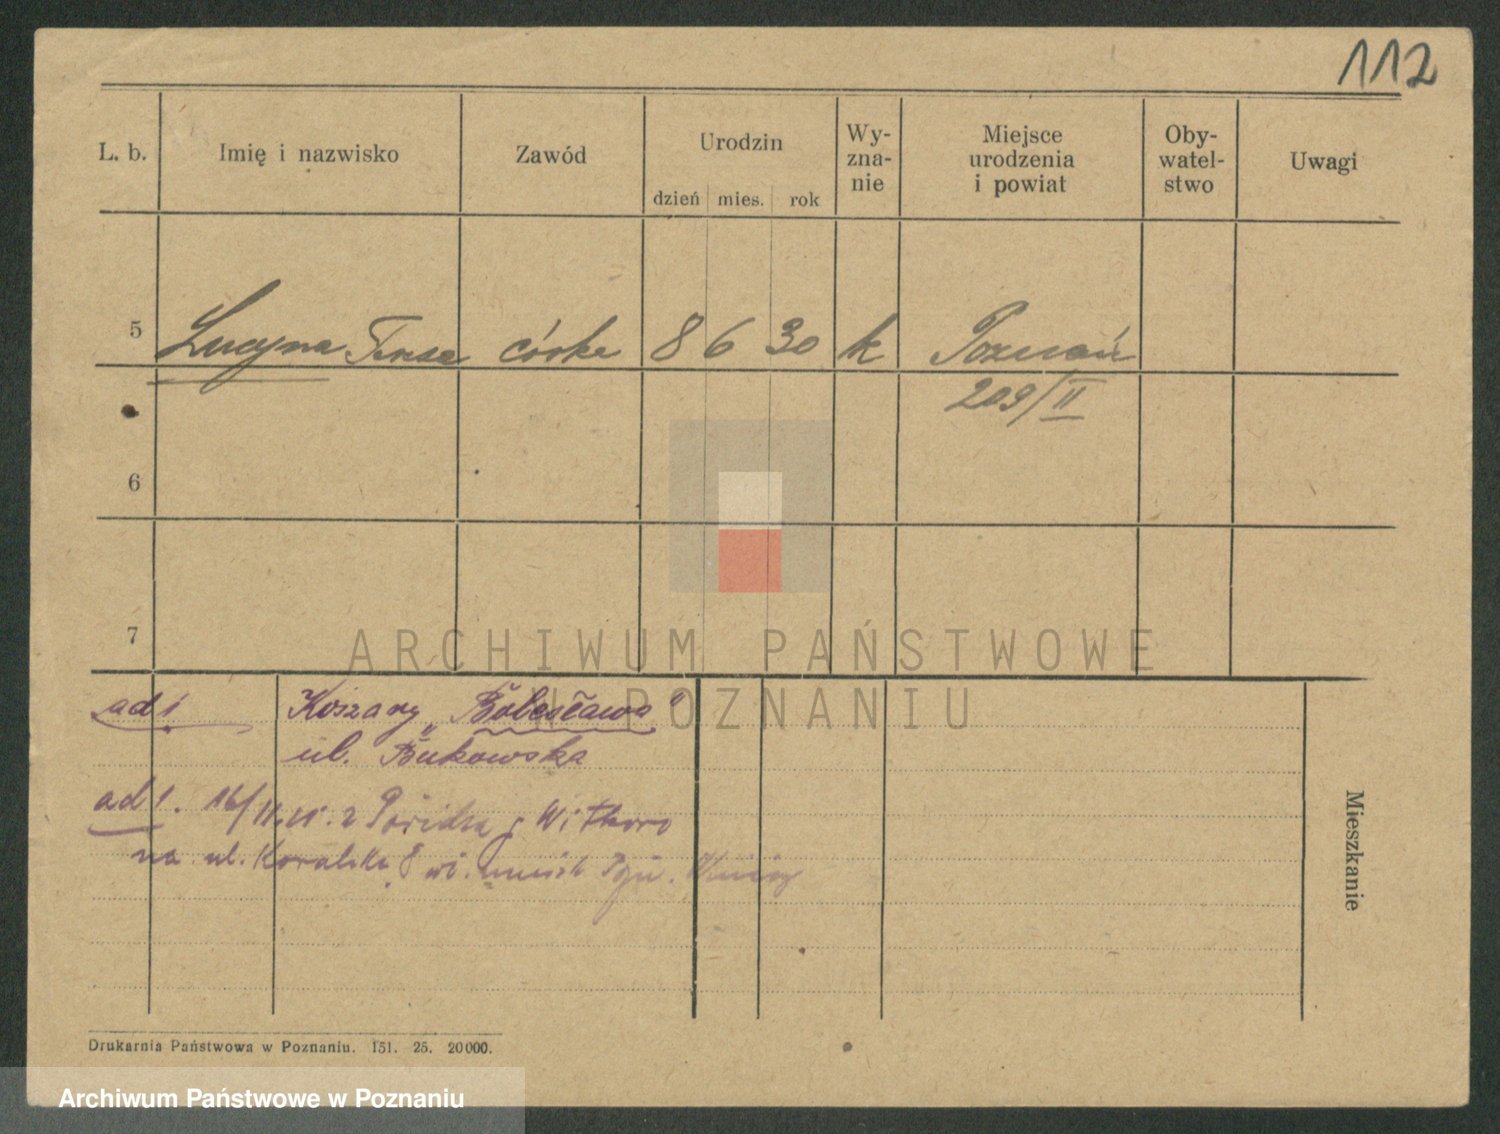 112
L. b. Imię i nazwisko Zawód Urodzin dzień mies. rok Wy-zna-nie Miejsce urodzenia i powiat Oby-watel-stwo Uwagi
5 Lucyna Teresa córka 8 6 30 k Poznań
209/II
6
7
ARCHIWUM PAŃSTWOWE
W POZNANIU
ad 1 Koszary „Bolesława"
ul. Bukowska
ad 1. 16/11
na ul. 8
Mieszkanie
Drukarnia Państwowa w Poznaniu. 151. 25. 20000.
Archiwum Państwowe w Poznaniu